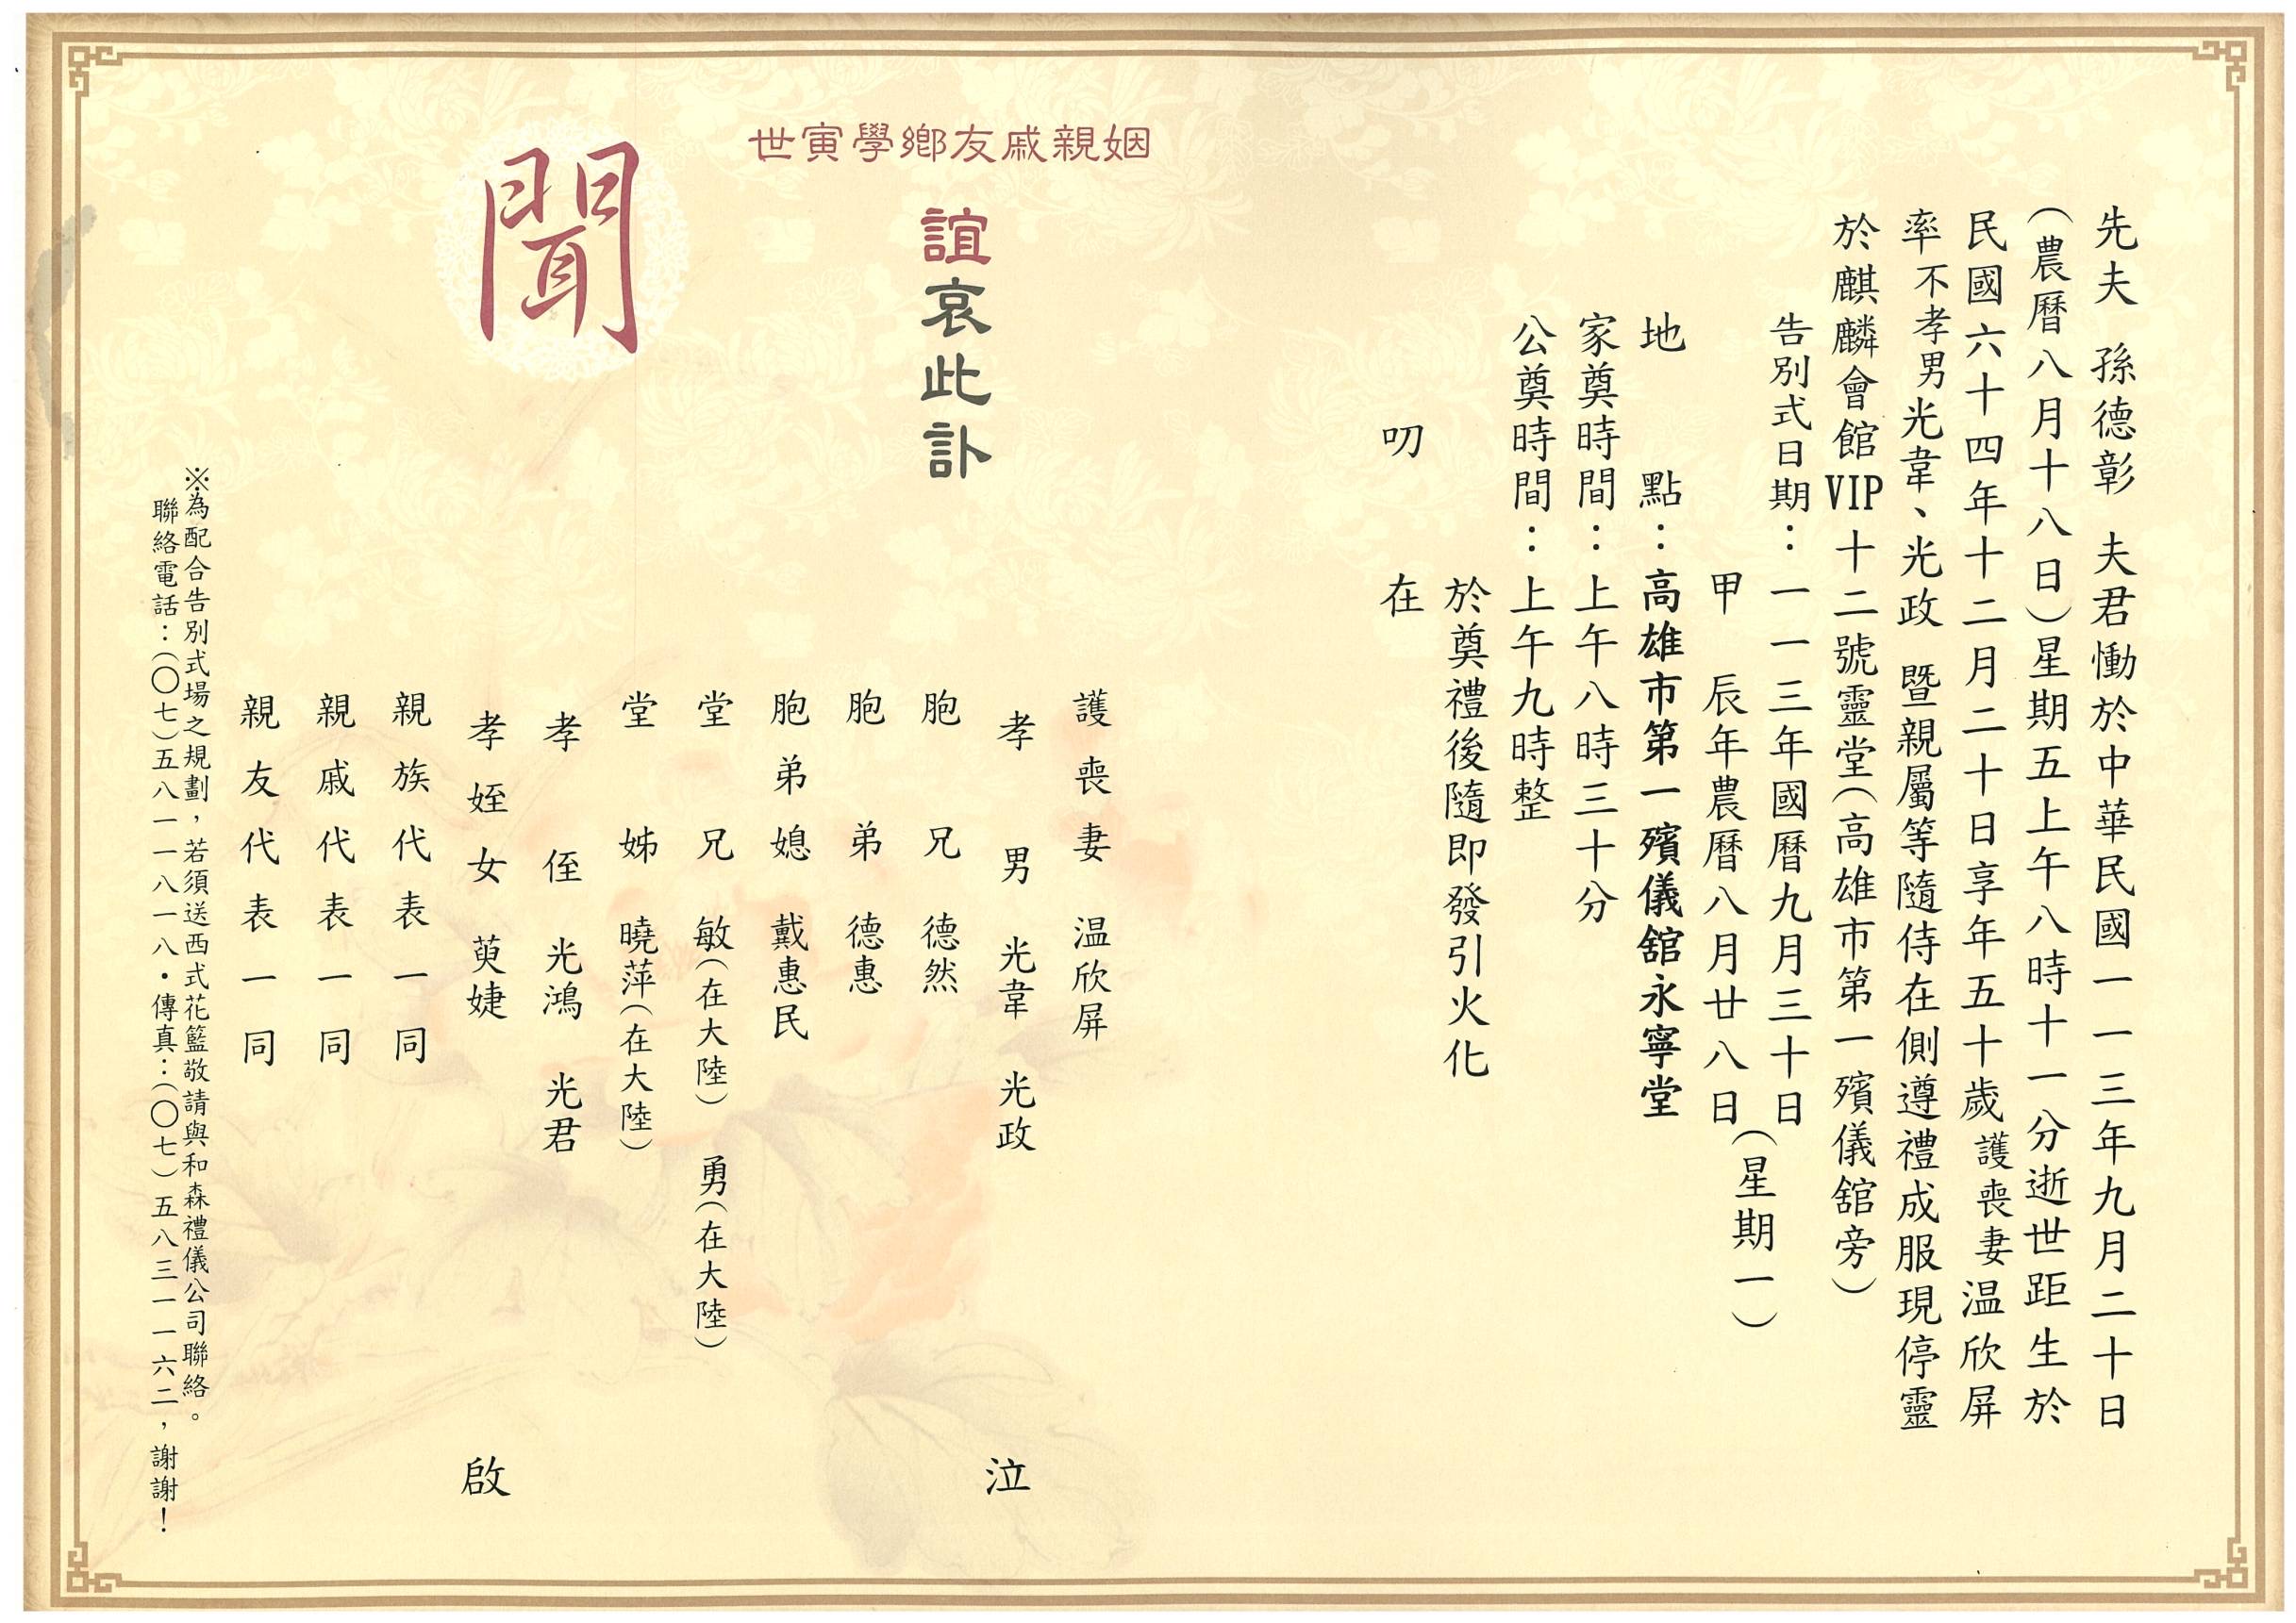 先夫 孫德彰 夫君慟於中華民國一一三年九月二十日
(農曆八月十八日)星期五上午八時十一分逝世距生於
民國六十四年十二月二十日享年五十歲護喪妻温欣屏
率不孝男光韋、光政 暨親屬等隨侍在側遵禮成服現停靈
於麒麟會館VIP十二號靈堂(高雄市第一殯儀舘旁)
告別式日期:一一三年國曆九月三十日
甲 辰年農曆八月廿八日
(星期一)
地 點:高雄市第一殯儀舘永寧堂
家奠時間:上午八時三十分
公奠時間:上午九時整
於奠禮後隨即發引火化
叨 在
姻親戚友鄉學寅世
誼哀此訃
聞
護喪妻 温欣屏
孝 男 光韋 光政
胞 兄 德然
胞 弟 德惠
胞弟媳 戴惠民
堂 兄 敏(在大陸) 勇(在大陸)
堂 姊 曉萍(在大陸)
孝 侄 光鴻 光君
孝姪女 萸婕
親族代表一同
親戚代表一同
親友代表一同
泣
啟
※為配合告別式場之規劃,若須送西式花籃敬請與和森禮儀公司聯絡。
聯絡電話:(〇七)五八一一八一八•傳真:(〇七)五八三一一六二,謝謝!